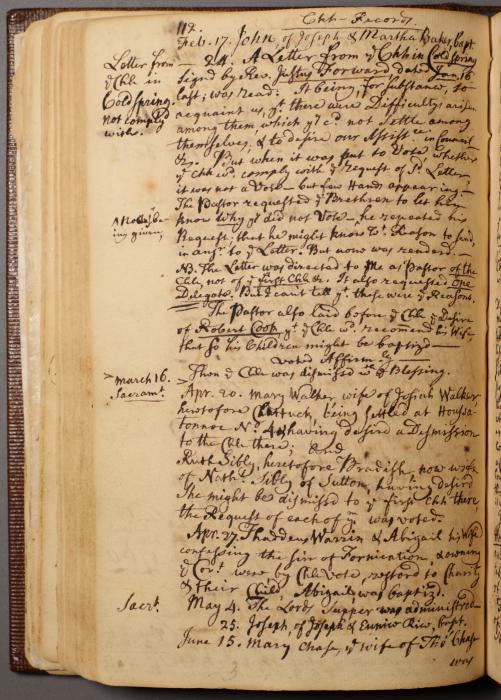 112. Chh-Records.
Feb. 17. John of Joseph & Martha Baker, bapt.
Letter from ye Chh in Coldspring not comply'd with.
— 24. A Letter from ye Chh in Cold Spring
Sign'd by Rev. Justus Forward dated Jan. 16
last; was read. It being, for substance, to
acquaint us, yt there were Difficultys arisen
among them which yy cd not Settle among
themselves, & to desire our Assistce in Council
&c. But when it was put to Vote, whether
ye Chh wd comply with ye Request of sd Letter,
it was not a Vote — but few Hands appearing. —
The Pastor requested ye Brethren to let him
know why yy did not Vote — he repeated his
Request, that he might know wt Reason to send,
in ansr to ye Letter. But none was rendred. —
being given,
NB. The Letter was directed to Me as Pastor of the
Chh, not of ye first Chh &c. It also requested One
Delegate. But I can't tell yt these were ye Reasons.
The Pastor also laid before ye Chh ye Desire
of Robert Cook yt ye Chh wd recomend his Wife
that so his Children might be baptized —
Voted Affirmly
Then ye Chh was dismissed wth ye Blessing.
March 16. Sacramt.
Apr. 20. Mary Walker, wife of Josiah Walker
heretofore being settled at Housa-
tonnoc No. 4 & having desired a Dismission
to the Chh there; And
Ruth Sibly, heretofore Bradish, now wife
of Nathl Sibly of Sutton, having desired
She might be dismissed to ye first Chh there,
the Request of each of ym was voted.
Apr. 27. Thaddeus Warrin & Abigail his Wife
confessing the sin of Fornication, & owning
ye Covt were by Chh Vote, restord to Charity
& their Child, Abigail, was baptizd.
Sacrt.
May 4. The Lords Supper was administred
25. Joseph, of Joseph & Eunice Rice, bapt.
June 15. Mary Chase, ye wife of Tho Chase
was